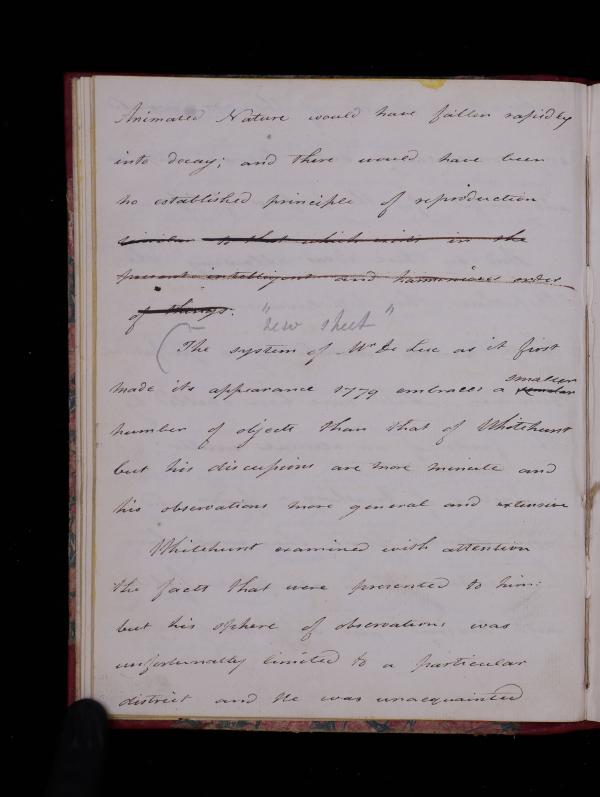 Animated Nature would have fallen rapidly
into decay; and there would have been
no established principle of reproduction
similar to that which exists in the
present intelligent and harmonious order
of things.
"new sheet"
The system of Mr De Luc as it first
smaller
made its appearance 1779 embraces a
number of objects than that of Whitehurst
but his discussions are more minute and
his observations more general and extensive
Whitehurst examined with attention
the facts that were presented to him:
but his sphere of observations was
unfortunatly limited to a particular
district and he was unacquainted